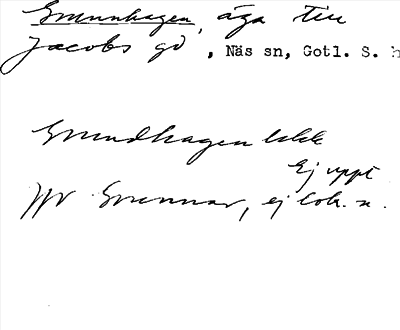 Grunnhagen, äga till
Jacobs gd, Näs sn, Gotl. S. h
Grundhagen
Ej uppt
ej lok. n.